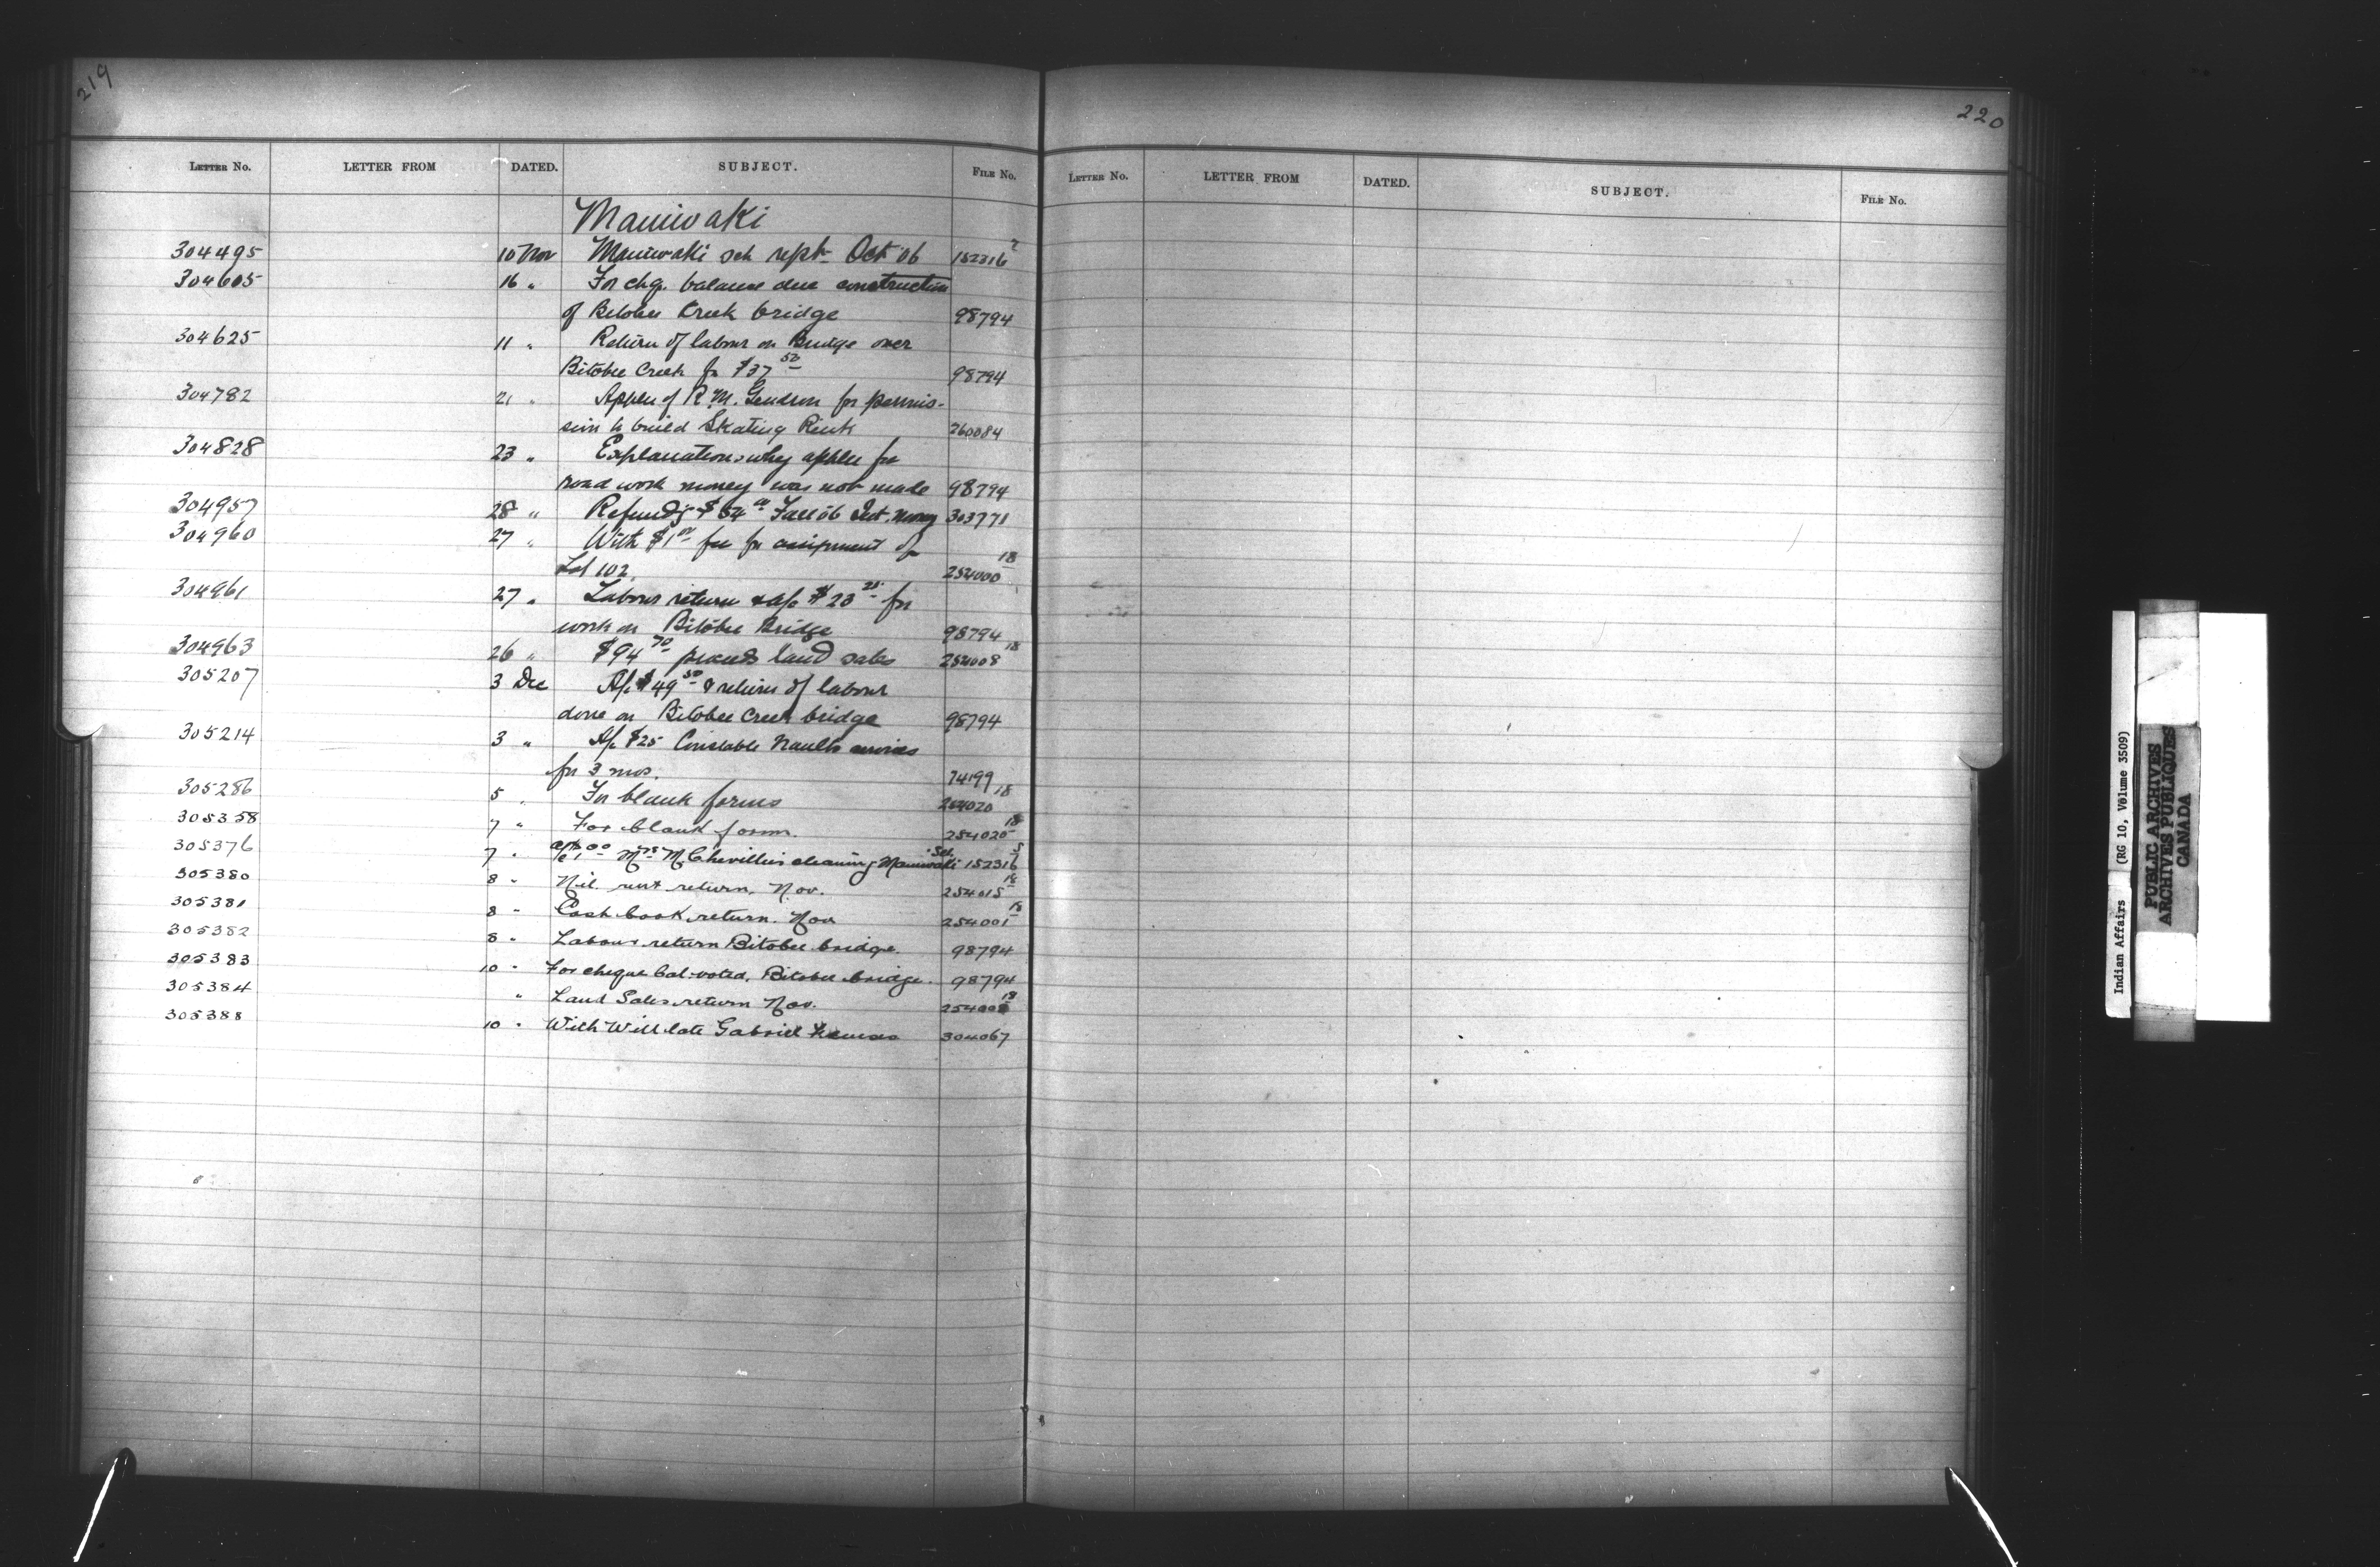 219
Letter No. LETTER FROM DATED. SUBJECT. File No.
Maniwaki
304495 10 Nov Maniwaki sch rept Oct 06 152316 7
304605 16 " For chq. balance due construction
of Bitobee Creek bridge 98794
304625 11 " Return of labour on Bridge over
Bitobee Creek for $37 50 98794
304782 21 " Applen of R. M. Gendron for permis-
sion to build Skating Rink 260084
304828 23 " Explanation why applen for
road work money was not made 98794
304957 28 " Refundg $ 84 00 Fall 06 Int. Money 303771
304960 27 " With $1 00 fee for assignment of
Lot 102 254000 18
304961 27 " Labour return & a/c $23 25 for
work on Bitobee Bridge 98794
304963 26 " $94 70 proceeds land sales 254008 18
305207 3 Dec A/c $49 50 & return of labour
done on Bitobee Creek bridge 98794
305214 3 " A/c $25 Constable Naults services
for 3 mos. 74199
305286 5 " For blank forms 254020 18
305358 7 " For blank forms. 254020 18
305376 7 " a/c $1 00 Mrs McChevillier cleaning Maniwaki Sch. 152316 5
305380 8 " Nil rent return, Nov. 254015 18
305381 8 " Cash book return. Nov 254001 18
305382 8 " Labour return Bitobee bridge. 98794
305383 10 " For cheque bal. voted, Bitobee bridge. 98794
305384 " Land Sales return Nov. 254008 18
305388 10 " With Will late Gabriel 304067
220
Letter No. LETTER FROM DATED. SUBJECT. File No.
Indian Affairs (RG 10, Volume 3509)
PUBLIC ARCHIVES
ARCHIVES PUBLIQUES
CANADA